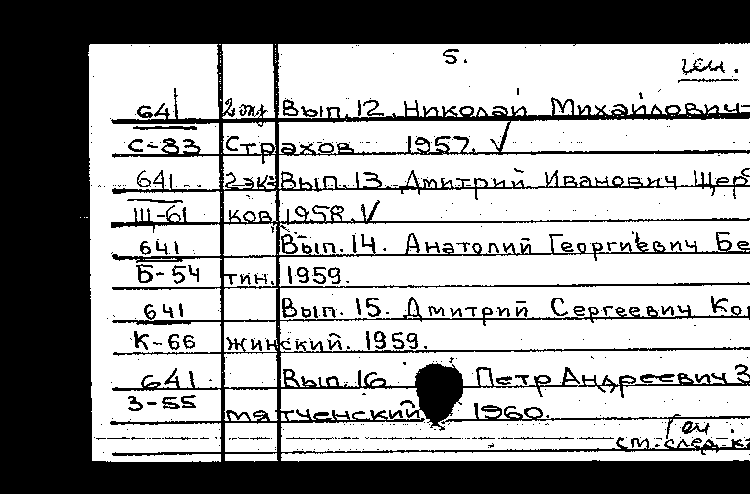 5.
ген.
641 2 экз Вып. 12. Николай Михайлович
С-83 Страхов 1957. √
641 2 экз Вып. 13. Дмитрий Иванович Щер
Щ-61 ков 1958. √
641 Вып. 14. Анатолий Георгиевич Бе
Б-54 тин. 1959.
641 Вып. 15. Дмитрий Сергеевич Кор
К-66 жинский. 1959.
641 Вып. 16 Петр Андреевич З
З-55 мятченский 1960.
Ген
см. след. к